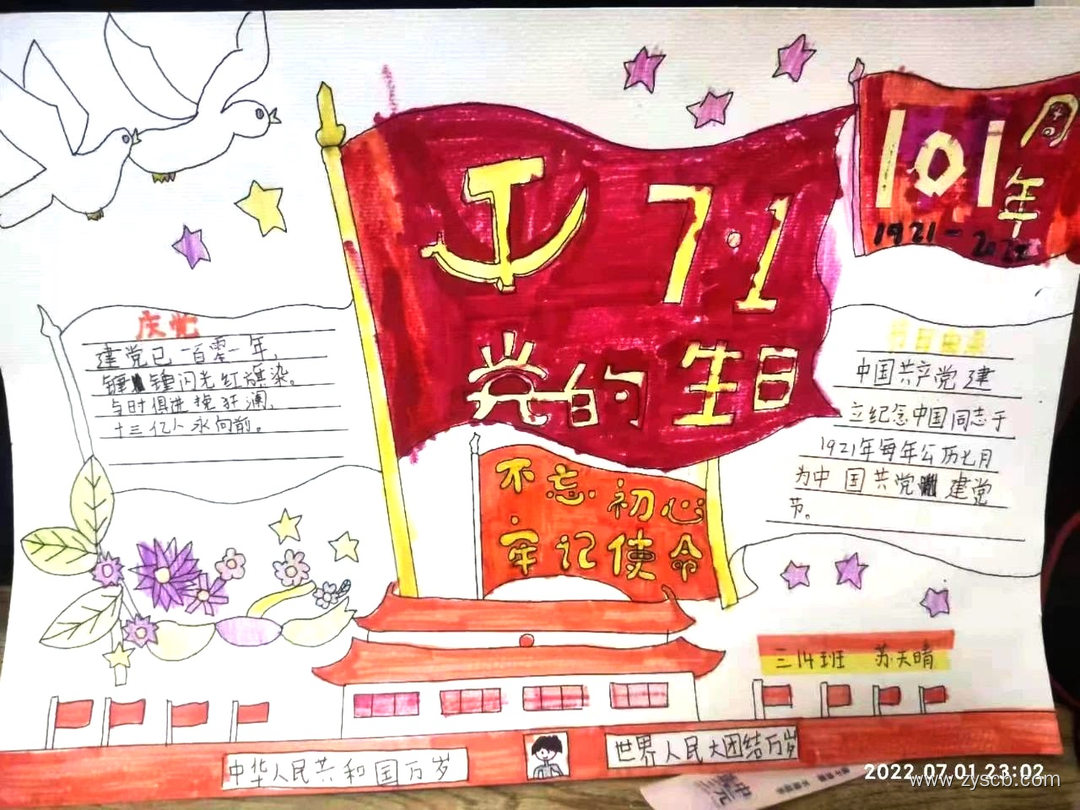 7·1
党的生日
101
周年
1921-2022
庆忆
建党已一百零一年，
锤镰闪光红旗染。
与时俱进挽狂澜，
十三亿人永向前。
中国共产党建
立纪念中国同志于
1921年每年公历七月
为中国共党建党
节。
不忘初心
牢记使命
三14班 苏天晴
中华人民共和国万岁
世界人民大团结万岁
2022.07.01 23:02
www.zyscb.com